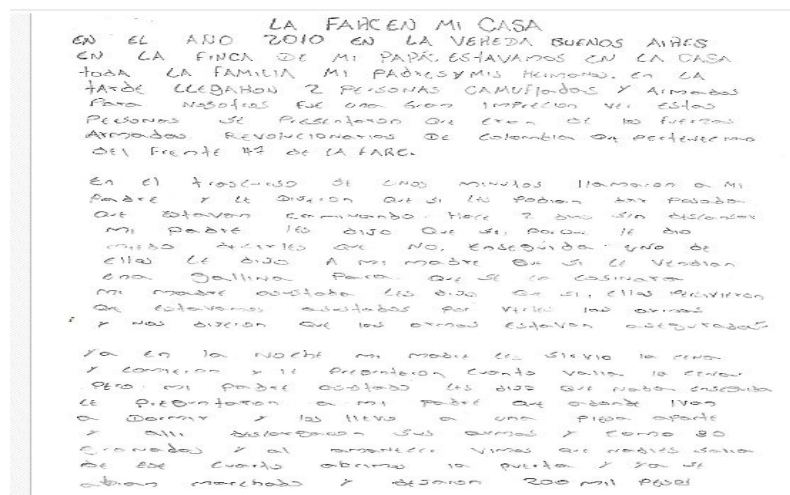 LA FARC EN MI CASA
EN EL AÑO 2010 EN LA VEREDA BUENOS AIRES
EN LA FINCA DE MI PAPÁ. ESTAVAMOS EN LA CASA
toda LA FAMILIA MI PADRES Y MIS HERMANO. EN LA
TARDE LLEGARON 2 PERSONAS CAMUFLADOS Y ARMADOS
Para NOSOTROS FUE una Gran IMPRECION VER ESTAS
PERSONAS SE PRESENTARON QUE ERAN DE las FUERZAS
ARMADAS REVOLUCIONARIOS DE COLOMBIA QUE
DEL FRENTE 47 DE LA FARC.
En el trascurso de unos minutos llamaron a MI
Padre y LE DIJERON QUE SI LES PODIAN DAR POSADA
QUE ESTAVAN CAMINANDO HACE 2 DIAS SIN DESCANSAR
MI PADRE LES DIJO QUE SI, PORQUE LE DIO
MIEDO DECIRLES QUE NO. ENSEGUIDA UNO DE
ELLOS LE DIJO A MI MADRE QUE SI LE VENDIAN
una gallina Para QUE SE LA COSINARA
MI MADRE ASUSTADA LES DIJO QUE SI, ELLOS
QUE ESTAVAMOS ASUSTADOS POR VERLES las armas
Y NOS DIJERON QUE las armas ESTAVAN ASEGURADAS
Ya en la NOCHE MI MADRE LES SIRVIO la cena
Y COMIERON Y LE PREGUNTARON CUANTO VALIA la CENA
PERO MI PADRE ASUSTADO LES DIJO QUE NADA ENSEGUIDA
LE PREGUNTARON a MI PADRE QUE aDONDE IVAN
a DORMIR Y los LLEVO a una PIEZA APARTE
Y alli DESCARGARON SUS armas Y COMO 20
GRANADAS Y al amanecer VIMOS QUE NADIES SALIA
DE ESE CUARTO abrimos la puerta Y YA SE
abian marchado Y DEJARON 200 MIL PESOS